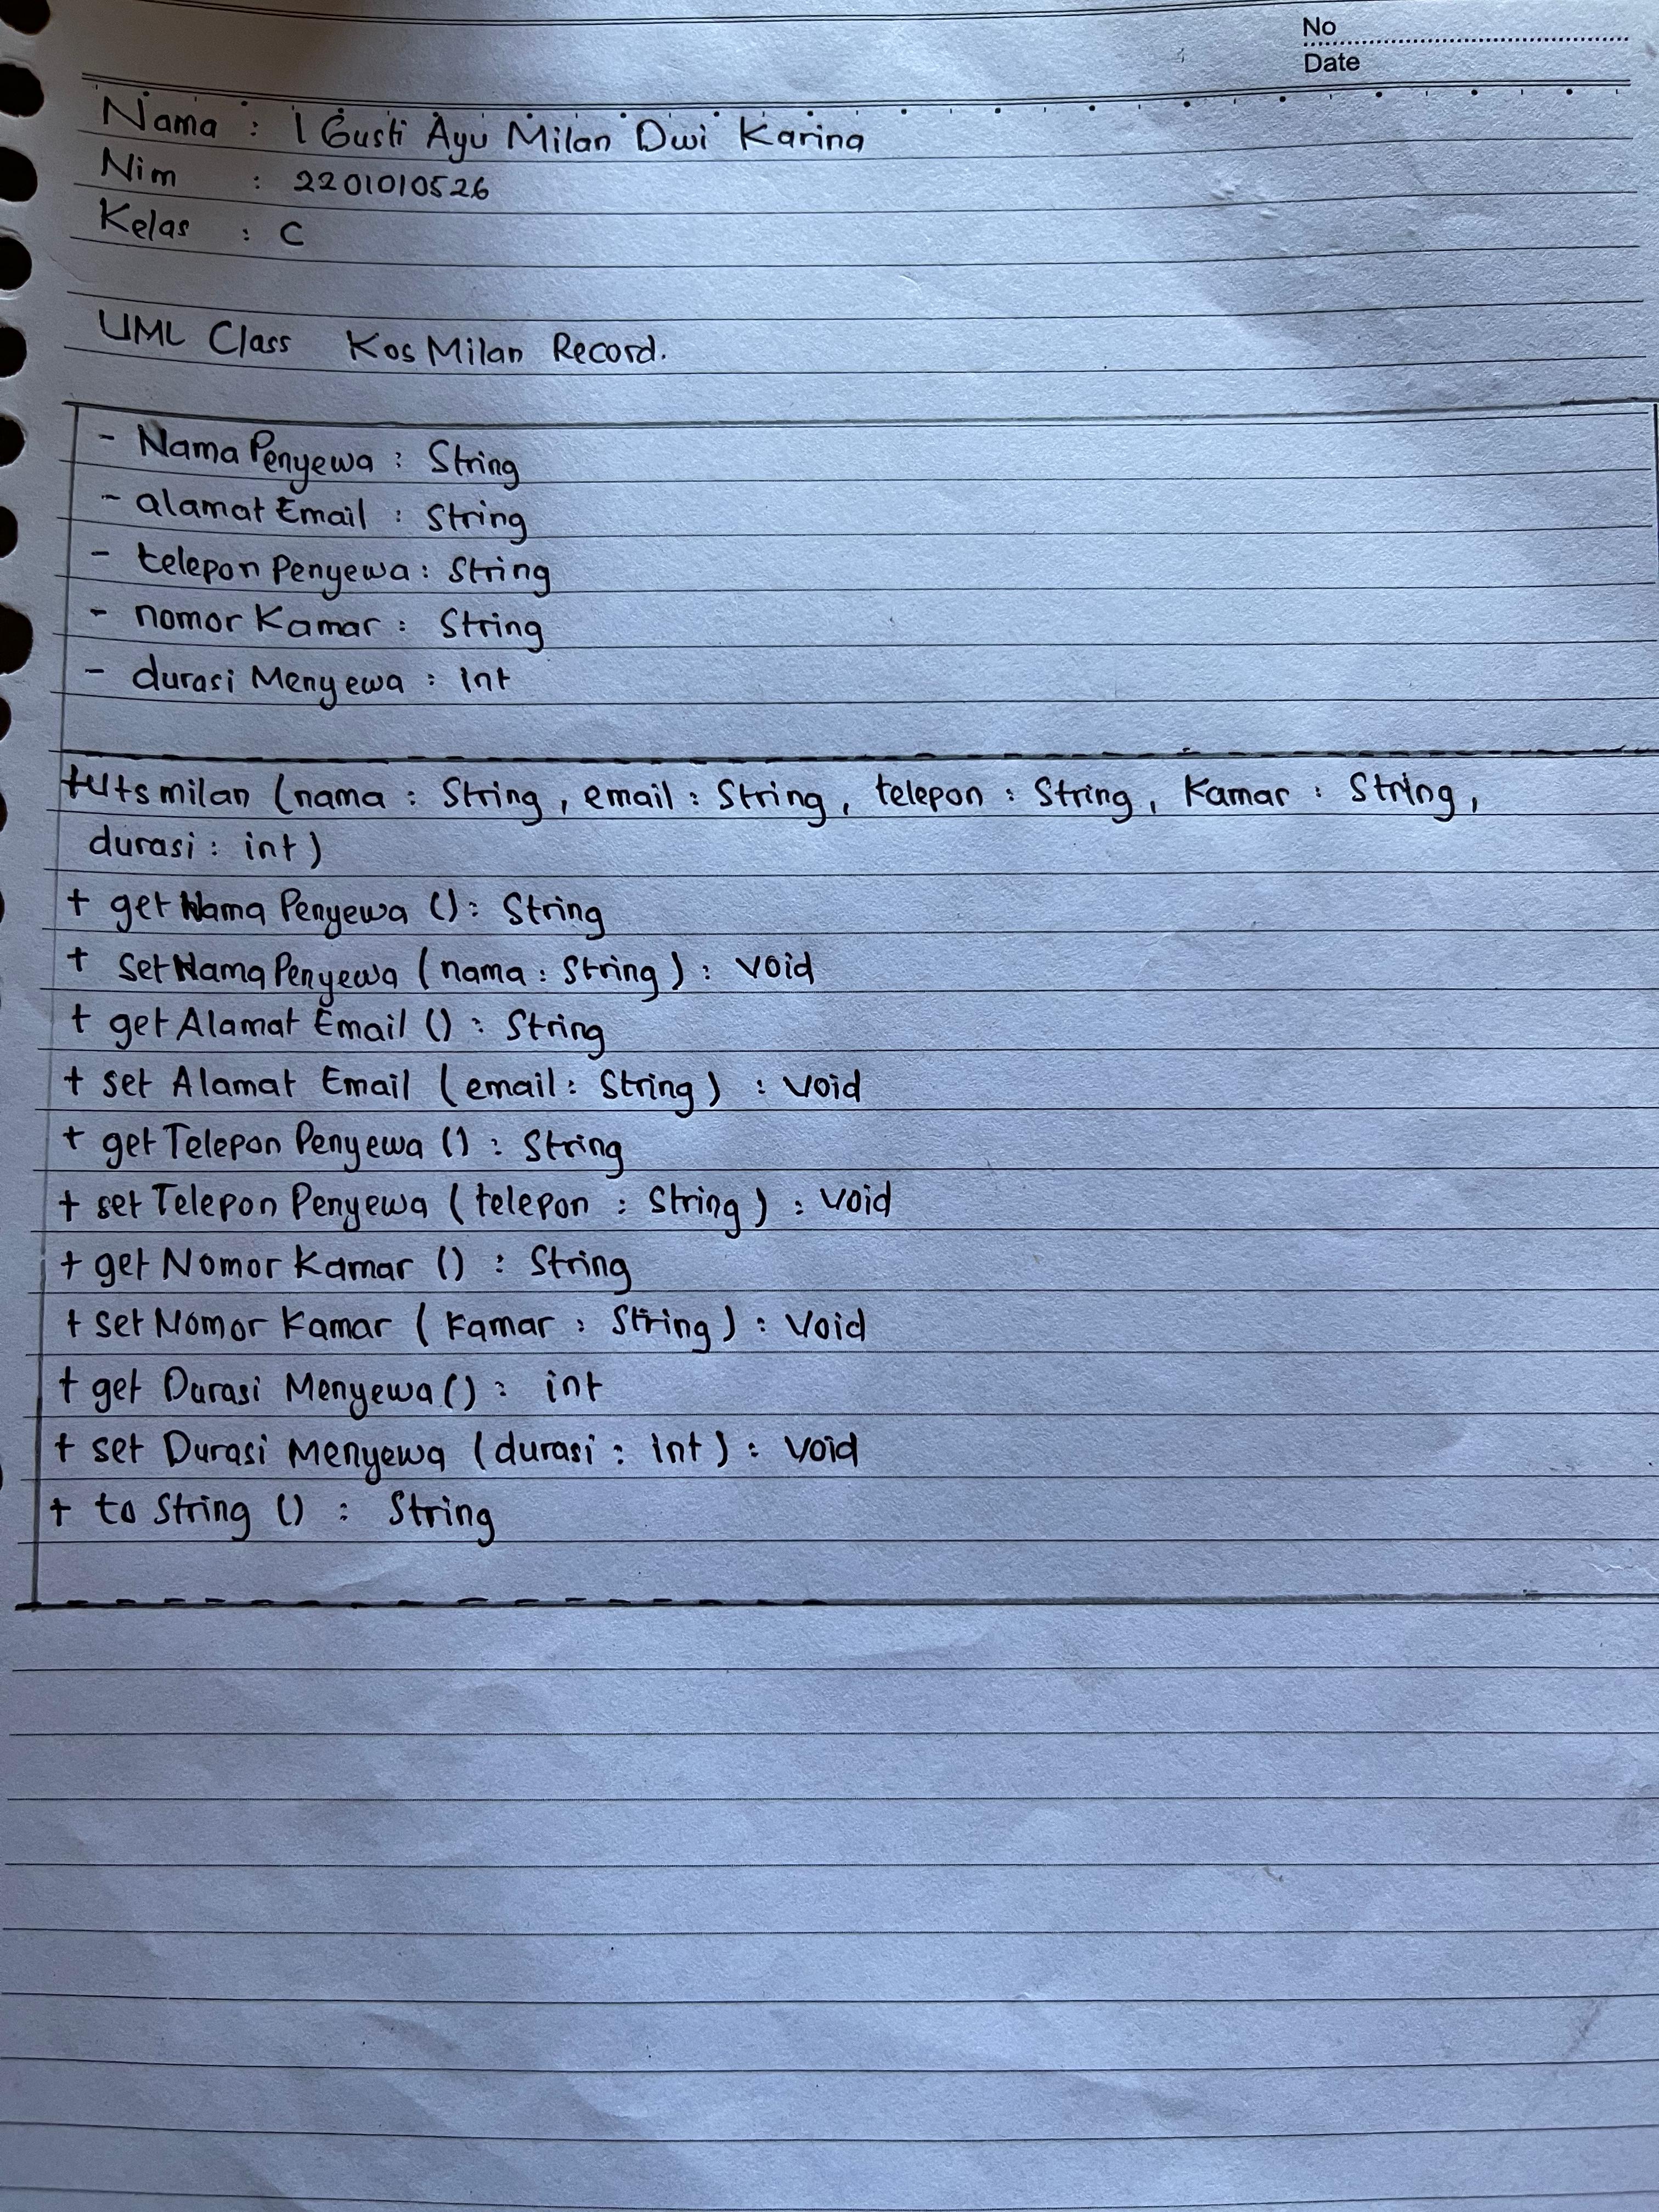 No
Date
Nama : I Gusti Ayu Milan Dwi Karina
Nim : 2201010526
Kelas : C
UML Class Kos Milan Record.
- Nama Penyewa : String
- alamat Email : String
- telepon Penyewa : String
- nomor Kamar : String
- durasi Menyewa : Int
+utsmilan (nama : String, email : String, telepon : String, Kamar : String,
durasi : int)
+ get Nama Penyewa () : String
+ set Nama Penyewa (nama : String) : void
+ get Alamat Email () : String
+ set Alamat Email (email : String) : void
+ get Telepon Penyewa () : String
+ set Telepon Penyewa (telepon : String) : void
+ get Nomor Kamar () : String
+ set Nomor Kamar (Kamar : String) : void
+ get Durasi Menyewa () : int
+ set Durasi Menyewa (durasi : int) : void
+ to String () : String